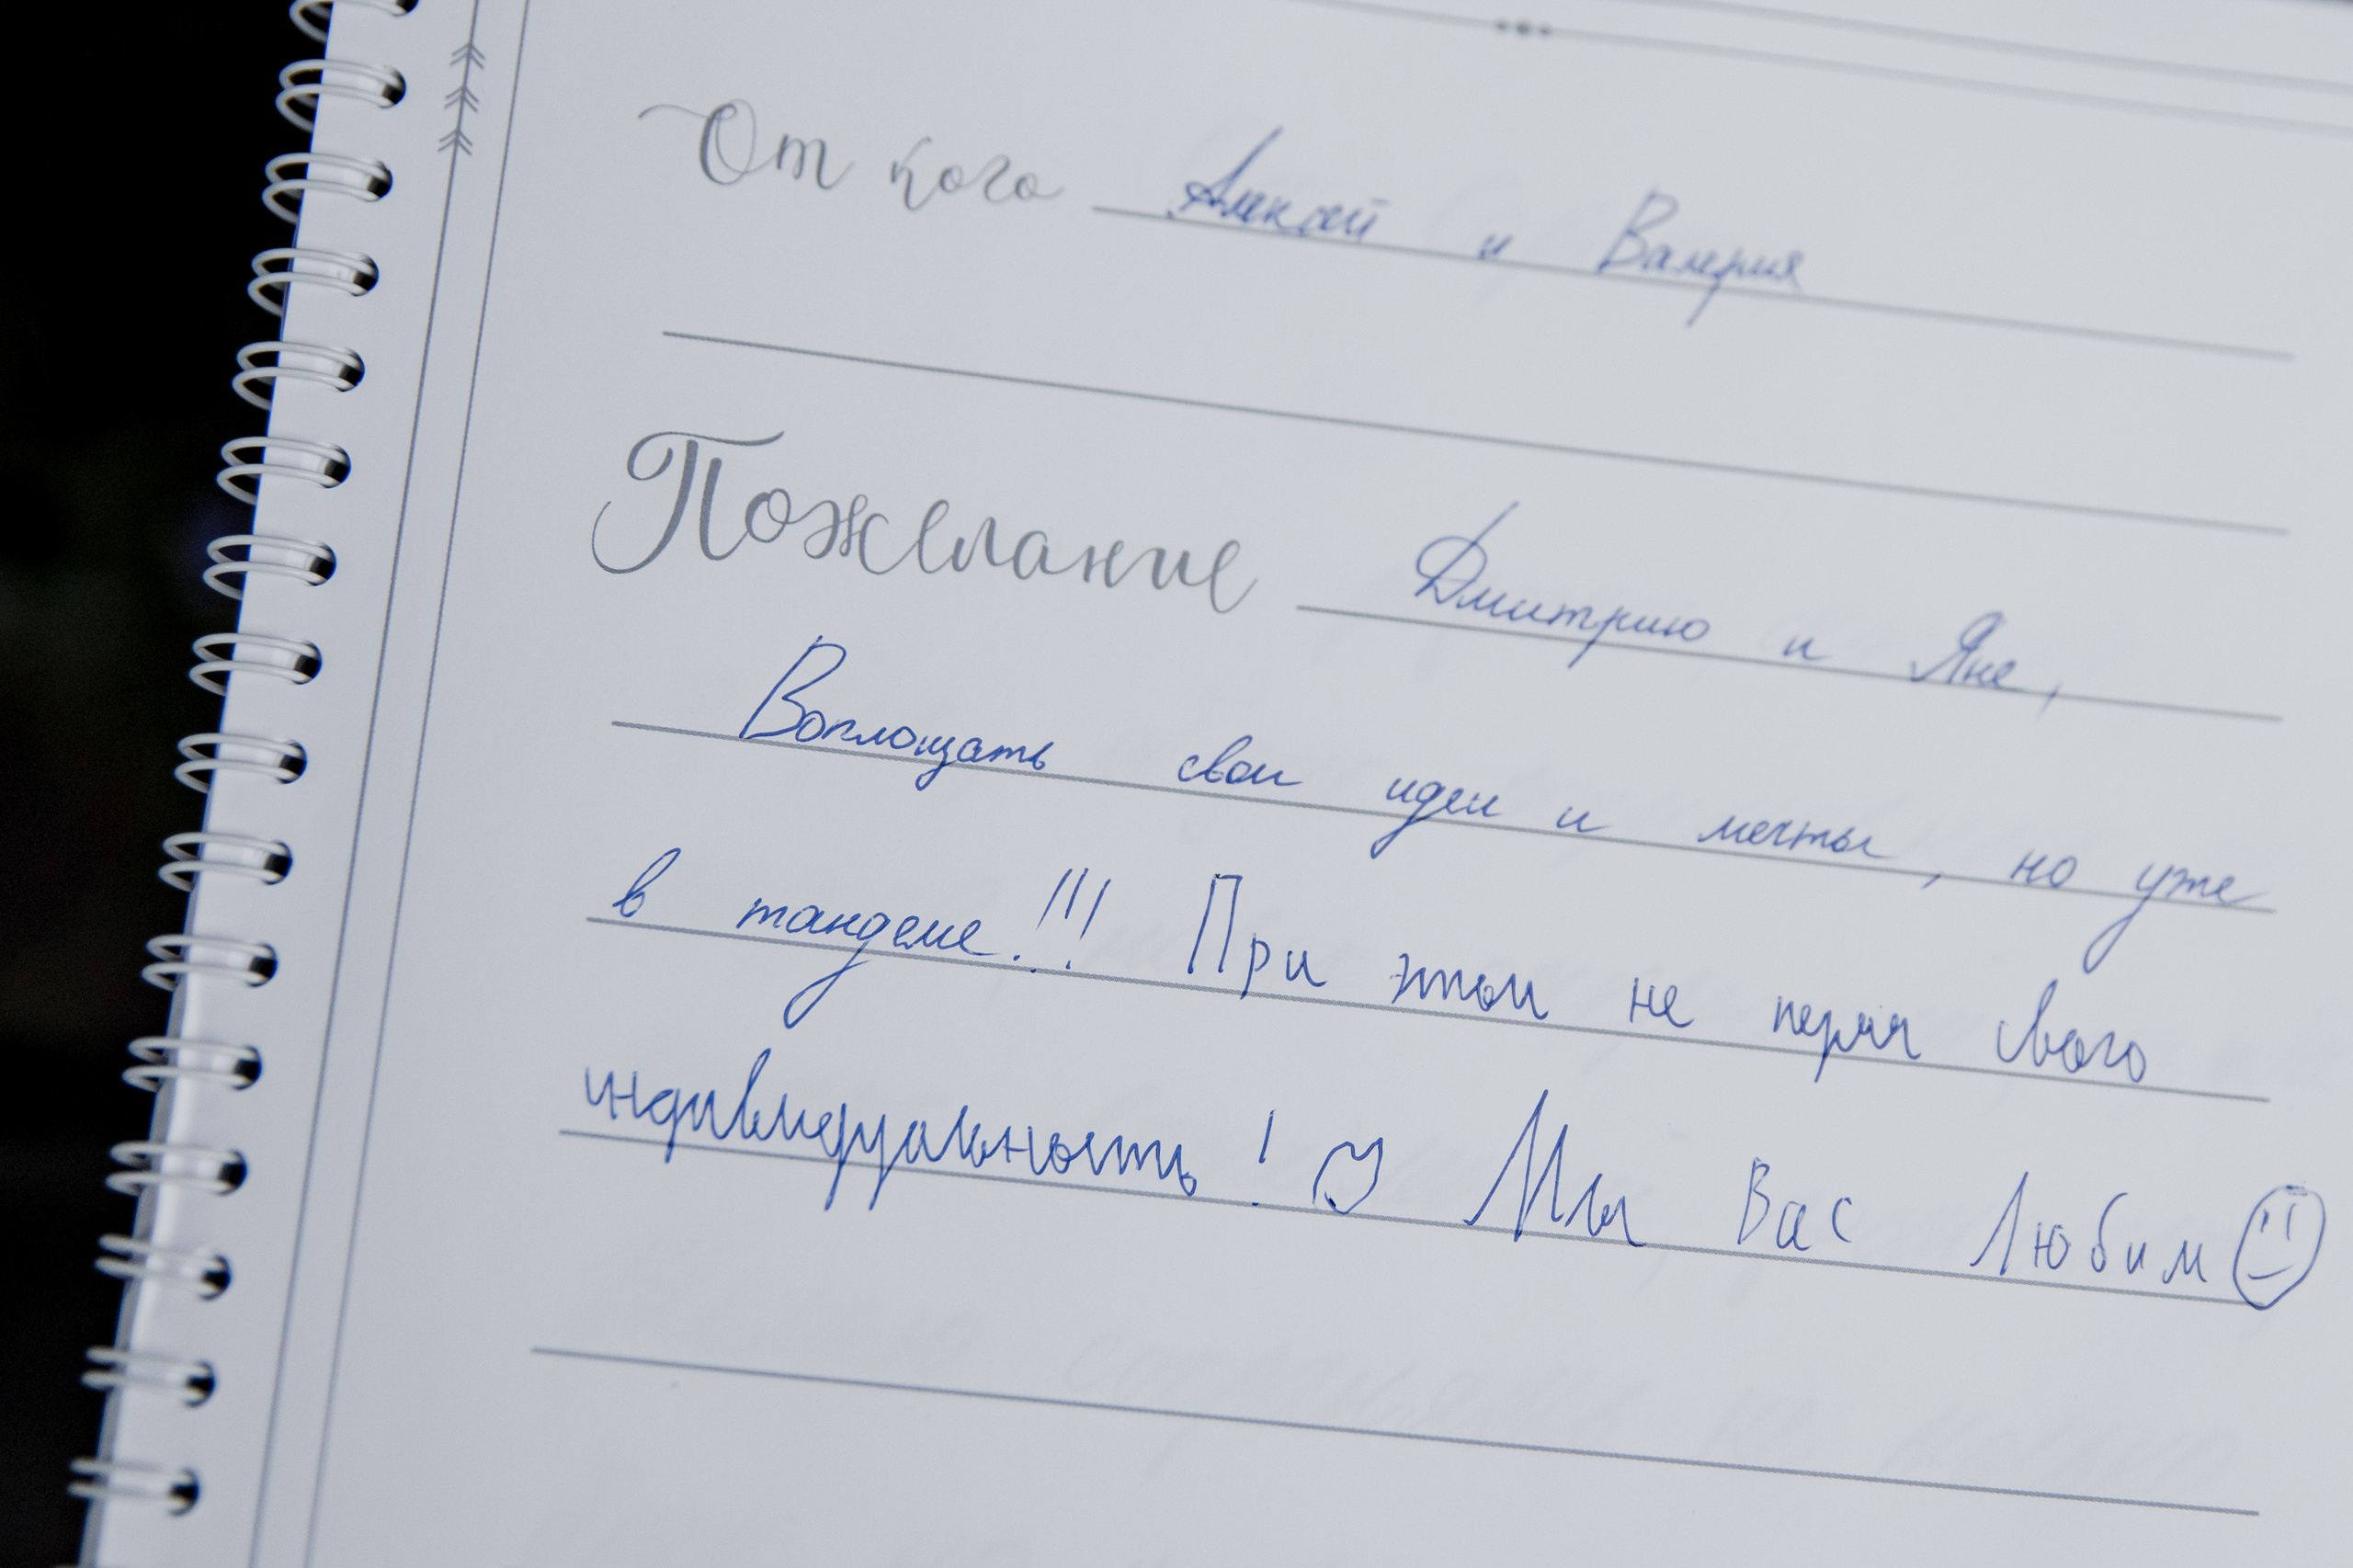 От кого Алексей и Валерия
Пожелание Дмитрию и Яне,
Воплощать свои идеи и мечты, но уже
в тандеме!!! При этом не теряя своего
индивидуальность! ♡ Мы Вас Любим☺